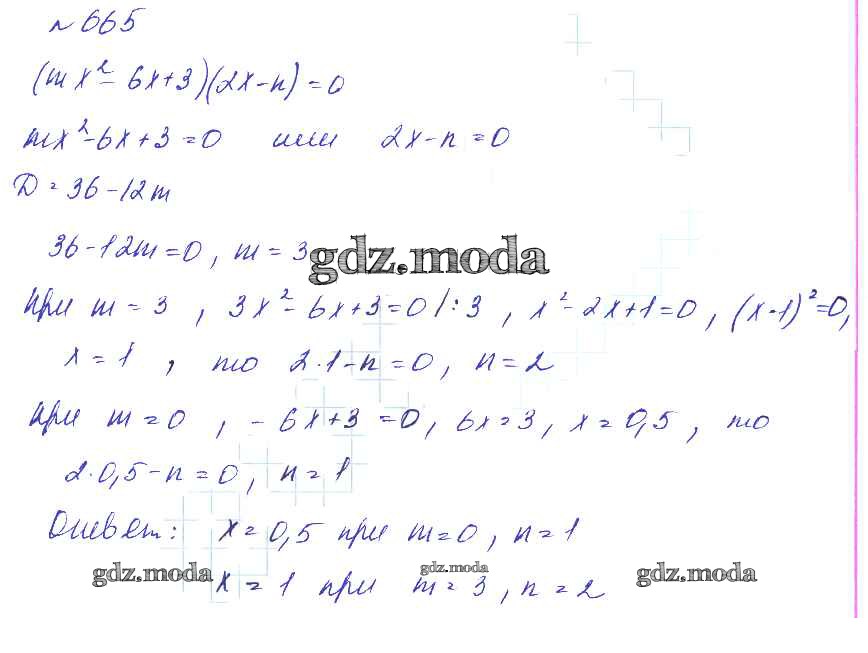 №665
(mx²-6x+3)(2x-n)=0
mx²-6x+3=0 или 2x-n=0
D=36-12m
36-12m=0, m=3
gdz.moda
при m=3, 3x²-6x+3=0 /:3, x²-2x+1=0, (x-1)²=0,
x=1, то 2·1-n=0, n=2
при m=0, -6x+3=0, 6x=3, x=0,5, то
2·0,5-n=0, n=1
Ответ: x=0,5 при m=0, n=1
x=1 при m=3, n=2
gdz.moda gdz.moda gdz.moda